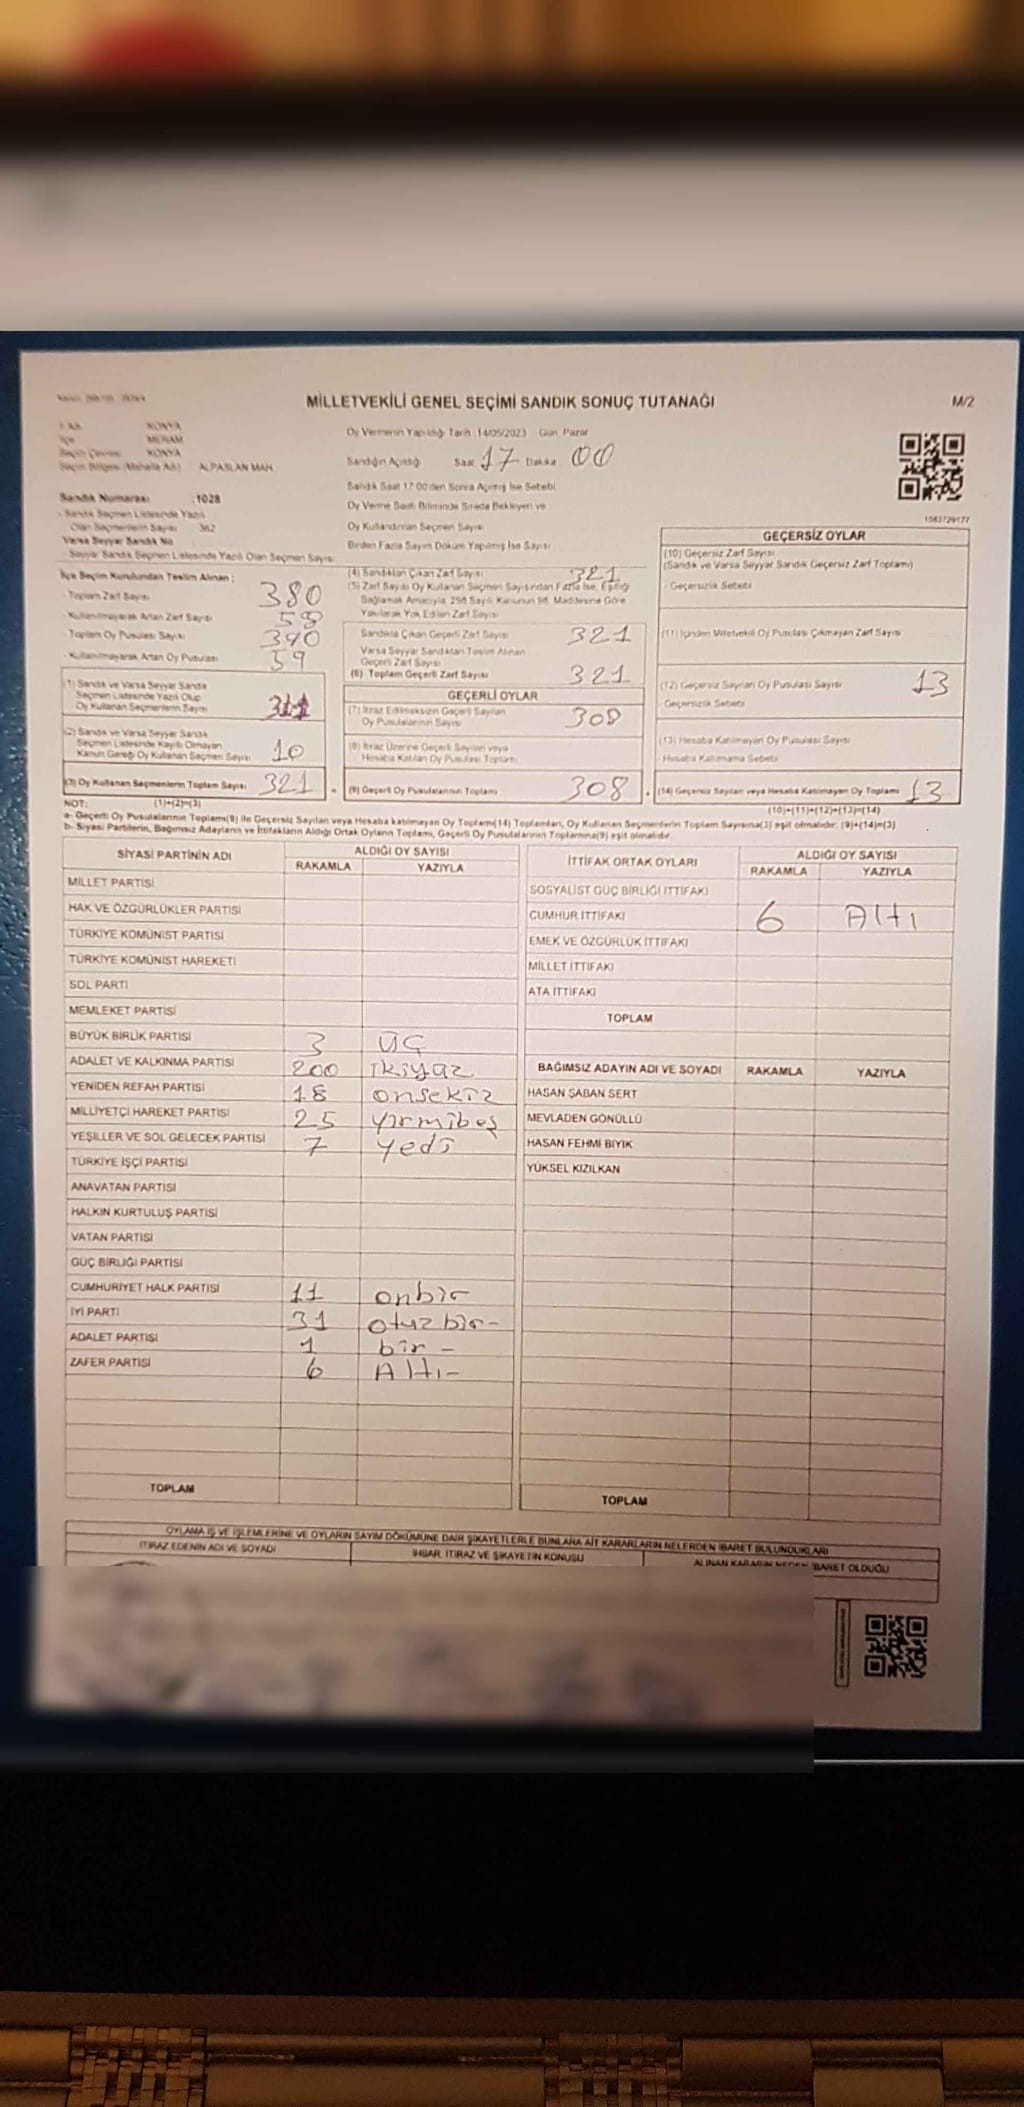 MİLLETVEKİLİ GENEL SEÇİMİ SANDIK SONUÇ TUTANAĞI
M/2
KONYA
İlçe MERAM
Seçim Çevresi KONYA
Seçim Bölgesi (Mahalle Adı) ALPASLAN MAH.
Sandık Numarası :1028
- Sandık Seçmen Listesinde Yazılı
Olan Seçmenlerin Sayısı 362
Varsa Seyyar Sandık No
- Seyyar Sandık Seçmen Listesinde Yazılı Olan Seçmen Sayısı:
Oy Vermenin Yapıldığı Tarih :14/05/2023 Gün: Pazar
Sandığın Açıldığı Saat 17 Dakika 00
Sandık Saat 17:00'den Sonra Açılmış İse Sebebi
Oy Verme Saati Bitiminde Sırada Bekleyen ve
Oy Kullandırılan Seçmen Sayısı
Birden Fazla Sayım Döküm Yapılmış İse Sayısı
1083729177
İlçe Seçim Kurulundan Teslim Alınan ;
- Toplam Zarf Sayısı 380
- Kullanılmayarak Artan Zarf Sayısı 59
- Toplam Oy Pusulası Sayısı
- Kullanılmayarak Artan Oy Pusulası 59
(1) Sandık ve Varsa Seyyar Sandık
Seçmen Listesinde Yazılı Olup
Oy Kullanan Seçmenlerin Sayısı 311
(2) Sandık ve Varsa Seyyar Sandık
Seçmen Listesinde Kayıtlı Olmayan
Kanun Gereği Oy Kullanan Seçmen Sayısı 10
(3) Oy Kullanan Seçmenlerin Toplam Sayısı 321
(4) Sandıktan Çıkan Zarf Sayısı 321
(5) Zarf Sayısı Oy Kullanan Seçmen Sayısından Fazla İse, Eşitliği
Sağlamak Amacıyla, 298 Sayılı Kanunun 98. Maddesine Göre
Yakılarak Yok Edilen Zarf Sayısı
Sandıkta Çıkan Geçerli Zarf Sayısı 321
Varsa Seyyar Sandıktan Teslim Alınan
Geçerli Zarf Sayısı
(6) Toplam Geçerli Zarf Sayısı 321
GEÇERLİ OYLAR
(7) İtiraz Edilmeksizin Geçerli Sayılan
Oy Pusulalarının Sayısı 308
(8) İtiraz Üzerine Geçerli Sayılan veya
Hesaba Katılan Oy Pusulası Toplamı
(9) Geçerli Oy Pusulalarının Toplamı 308
GEÇERSİZ OYLAR
(10) Geçersiz Zarf Sayısı
(Sandık ve Varsa Seyyar Sandık Geçersiz Zarf Toplamı)
- Geçersizlik Sebebi
(11) İçinden Milletvekili Oy Pusulası Çıkmayan Zarf Sayısı
(12) Geçersiz Sayılan Oy Pusulası Sayısı 13
- Geçersizlik Sebebi
(13) Hesaba Katılmayan Oy Pusulası Sayısı
- Hesaba Katılmama Sebebi
(14) Geçersiz Sayılan veya Hesaba Katılmayan Oy Toplamı 13
NOT: (1)+(2)=(3) (10)+(11)+(12)+(13)=(14)
a- Geçerli Oy Pusulalarının Toplamı(9) ile Geçersiz Sayılan veya Hesaba katılmayan Oy Toplamı(14) Toplamları, Oy Kullanan Seçmenlerin Toplam Sayısına(3) eşit olmalıdır. (9)+(14)=(3)
b- Siyasi Partilerin, Bağımsız Adayların ve İttifakların Aldığı Ortak Oyların Toplamı, Geçerli Oy Pusulalarının Toplamına(9) eşit olmalıdır.
SİYASİ PARTİNİN ADI ALDIĞI OY SAYISI
RAKAMLA YAZIYLA
MİLLET PARTİSİ
HAK VE ÖZGÜRLÜKLER PARTİSİ
TÜRKİYE KOMÜNİST PARTİSİ
TÜRKİYE KOMÜNİST HAREKETİ
SOL PARTİ
MEMLEKET PARTİSİ
BÜYÜK BİRLİK PARTİSİ 3 ÜÇ
ADALET VE KALKINMA PARTİSİ 200 ikiyüz
YENİDEN REFAH PARTİSİ 18 onsekiz
MİLLİYETÇİ HAREKET PARTİSİ 25 yirmibeş
YEŞİLLER VE SOL GELECEK PARTİSİ 7 yedi
TÜRKİYE İŞÇİ PARTİSİ
ANAVATAN PARTİSİ
HALKIN KURTULUŞ PARTİSİ
VATAN PARTİSİ
GÜÇ BİRLİĞİ PARTİSİ
CUMHURİYET HALK PARTİSİ 11 onbir
İYİ PARTİ 31 otuzbir-
ADALET PARTİSİ 1 bir -
ZAFER PARTİSİ 6 Altı-
TOPLAM
İTTİFAK ORTAK OYLARI ALDIĞI OY SAYISI
RAKAMLA YAZIYLA
SOSYALİST GÜÇ BİRLİĞİ İTTİFAKI
CUMHUR İTTİFAKI 6 Altı
EMEK VE ÖZGÜRLÜK İTTİFAKI
MİLLET İTTİFAKI
ATA İTTİFAKI
TOPLAM
BAĞIMSIZ ADAYIN ADI VE SOYADI RAKAMLA YAZIYLA
HASAN ŞABAN SERT
MEVLADEN GÖNÜLLÜ
HASAN FEHMİ BIYIK
YÜKSEL KIZILKAN
TOPLAM
OYLAMA İŞ VE İŞLEMLERİNE VE OYLARIN SAYIM DÖKÜMÜNE DAİR ŞİKAYETLERLE BUNLARA AİT KARARLARIN NELERDEN İBARET BULUNDUKLARI
İTİRAZ EDENİN ADI VE SOYADI İHBAR, İTİRAZ VE ŞİKAYETİN KONUSU ALINAN KARARIN NEDEN İBARET OLDUĞU